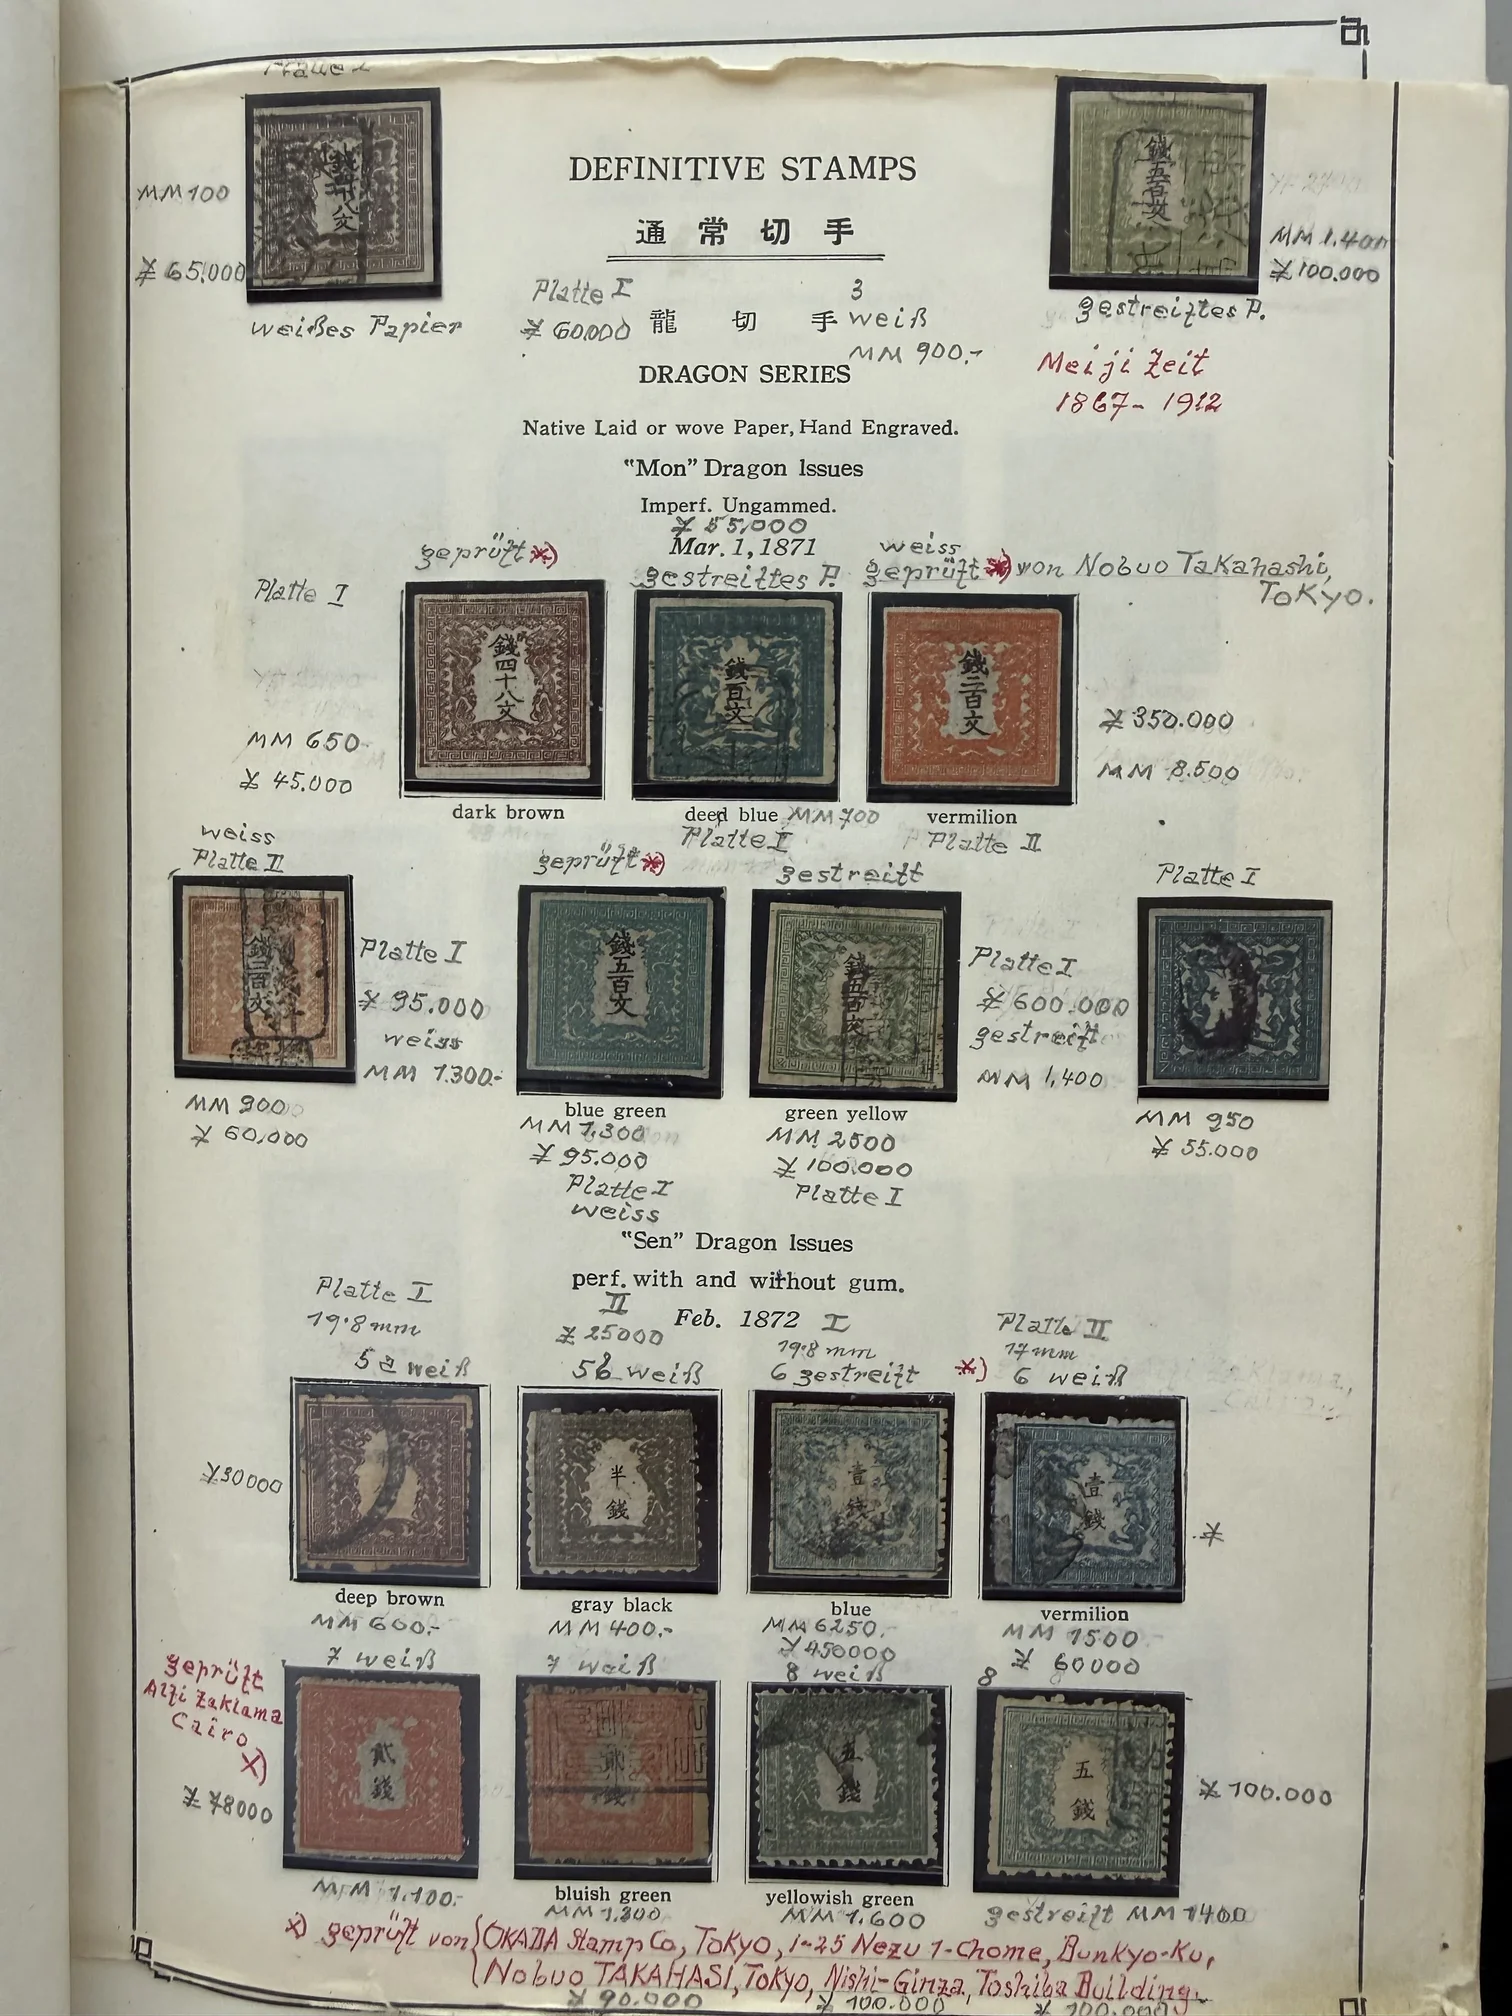 DEFINITIVE STAMPS
通常切手
MM 100
¥ 65.000
weißes Papier
Platte I
¥ 60.000
龍切手
3
weiß
MM 900.-
MM 1.400
¥ 100.000
gestreiftes P.
Meiji Zeit
1867 - 1912
DRAGON SERIES
Native Laid or wove Paper, Hand Engraved.
"Mon" Dragon Issues
Imperf. Ungammed.
¥ 55,000
Mar. 1, 1871
geprüft *)
gestreiftes P.
weiss
geprüft *) von Nobuo Takahashi,
Tokyo.
Platte I
錢四十八文
錢百文
錢二百文
MM 650
¥ 45.000
¥ 350.000
MM 8.500
dark brown
deed blue MM 700
vermilion
Platte I
Platte II
weiss
Platte II
geprüft *)
gestreift
Platte I
錢二百文
錢五百文
錢五百文
Platte I
¥ 95.000
weiss
MM 1.300.-
Platte I
¥ 600.000
gestreift
MM 1,400
MM 900
¥ 60,000
blue green
MM 1,300
¥ 95.000
Platte I
weiss
green yellow
MM 2500
¥ 100.000
Platte I
MM 950
¥ 55.000
"Sen" Dragon Issues
perf. with and without gum.
Feb. 1872
Platte I
19.8 mm
5a weiß
II
¥ 25000
5b weiß
I
19.8 mm
6 gestreift
Platte II
17 mm
*) 6 weiß
半錢
壹錢
壹錢
¥30000
deep brown
MM 600.-
gray black
MM 400.-
blue
MM 6250.-
¥ 450000
vermilion
MM 1500
¥ 60000
7 weiß
7 weiß
8 weiß
8
geprüft
Alfi Zaklama
Cairo
X)
¥ 78000
貳錢
貳錢
五錢
五錢
¥ 100.000
MM 1.100.-
bluish green
MM 1.300
yellowish green
MM 1.600
gestreift MM 1400
x) geprüft von { OKADA Stamp Co, Tokyo, 1-25 Nezu 1-Chome, Bunkyo-Ku,
Nobuo TAKAHASI, Tokyo, Nishi-Ginza, Toshiba Building.
¥ 90.000
¥ 100.000
¥ 100.000